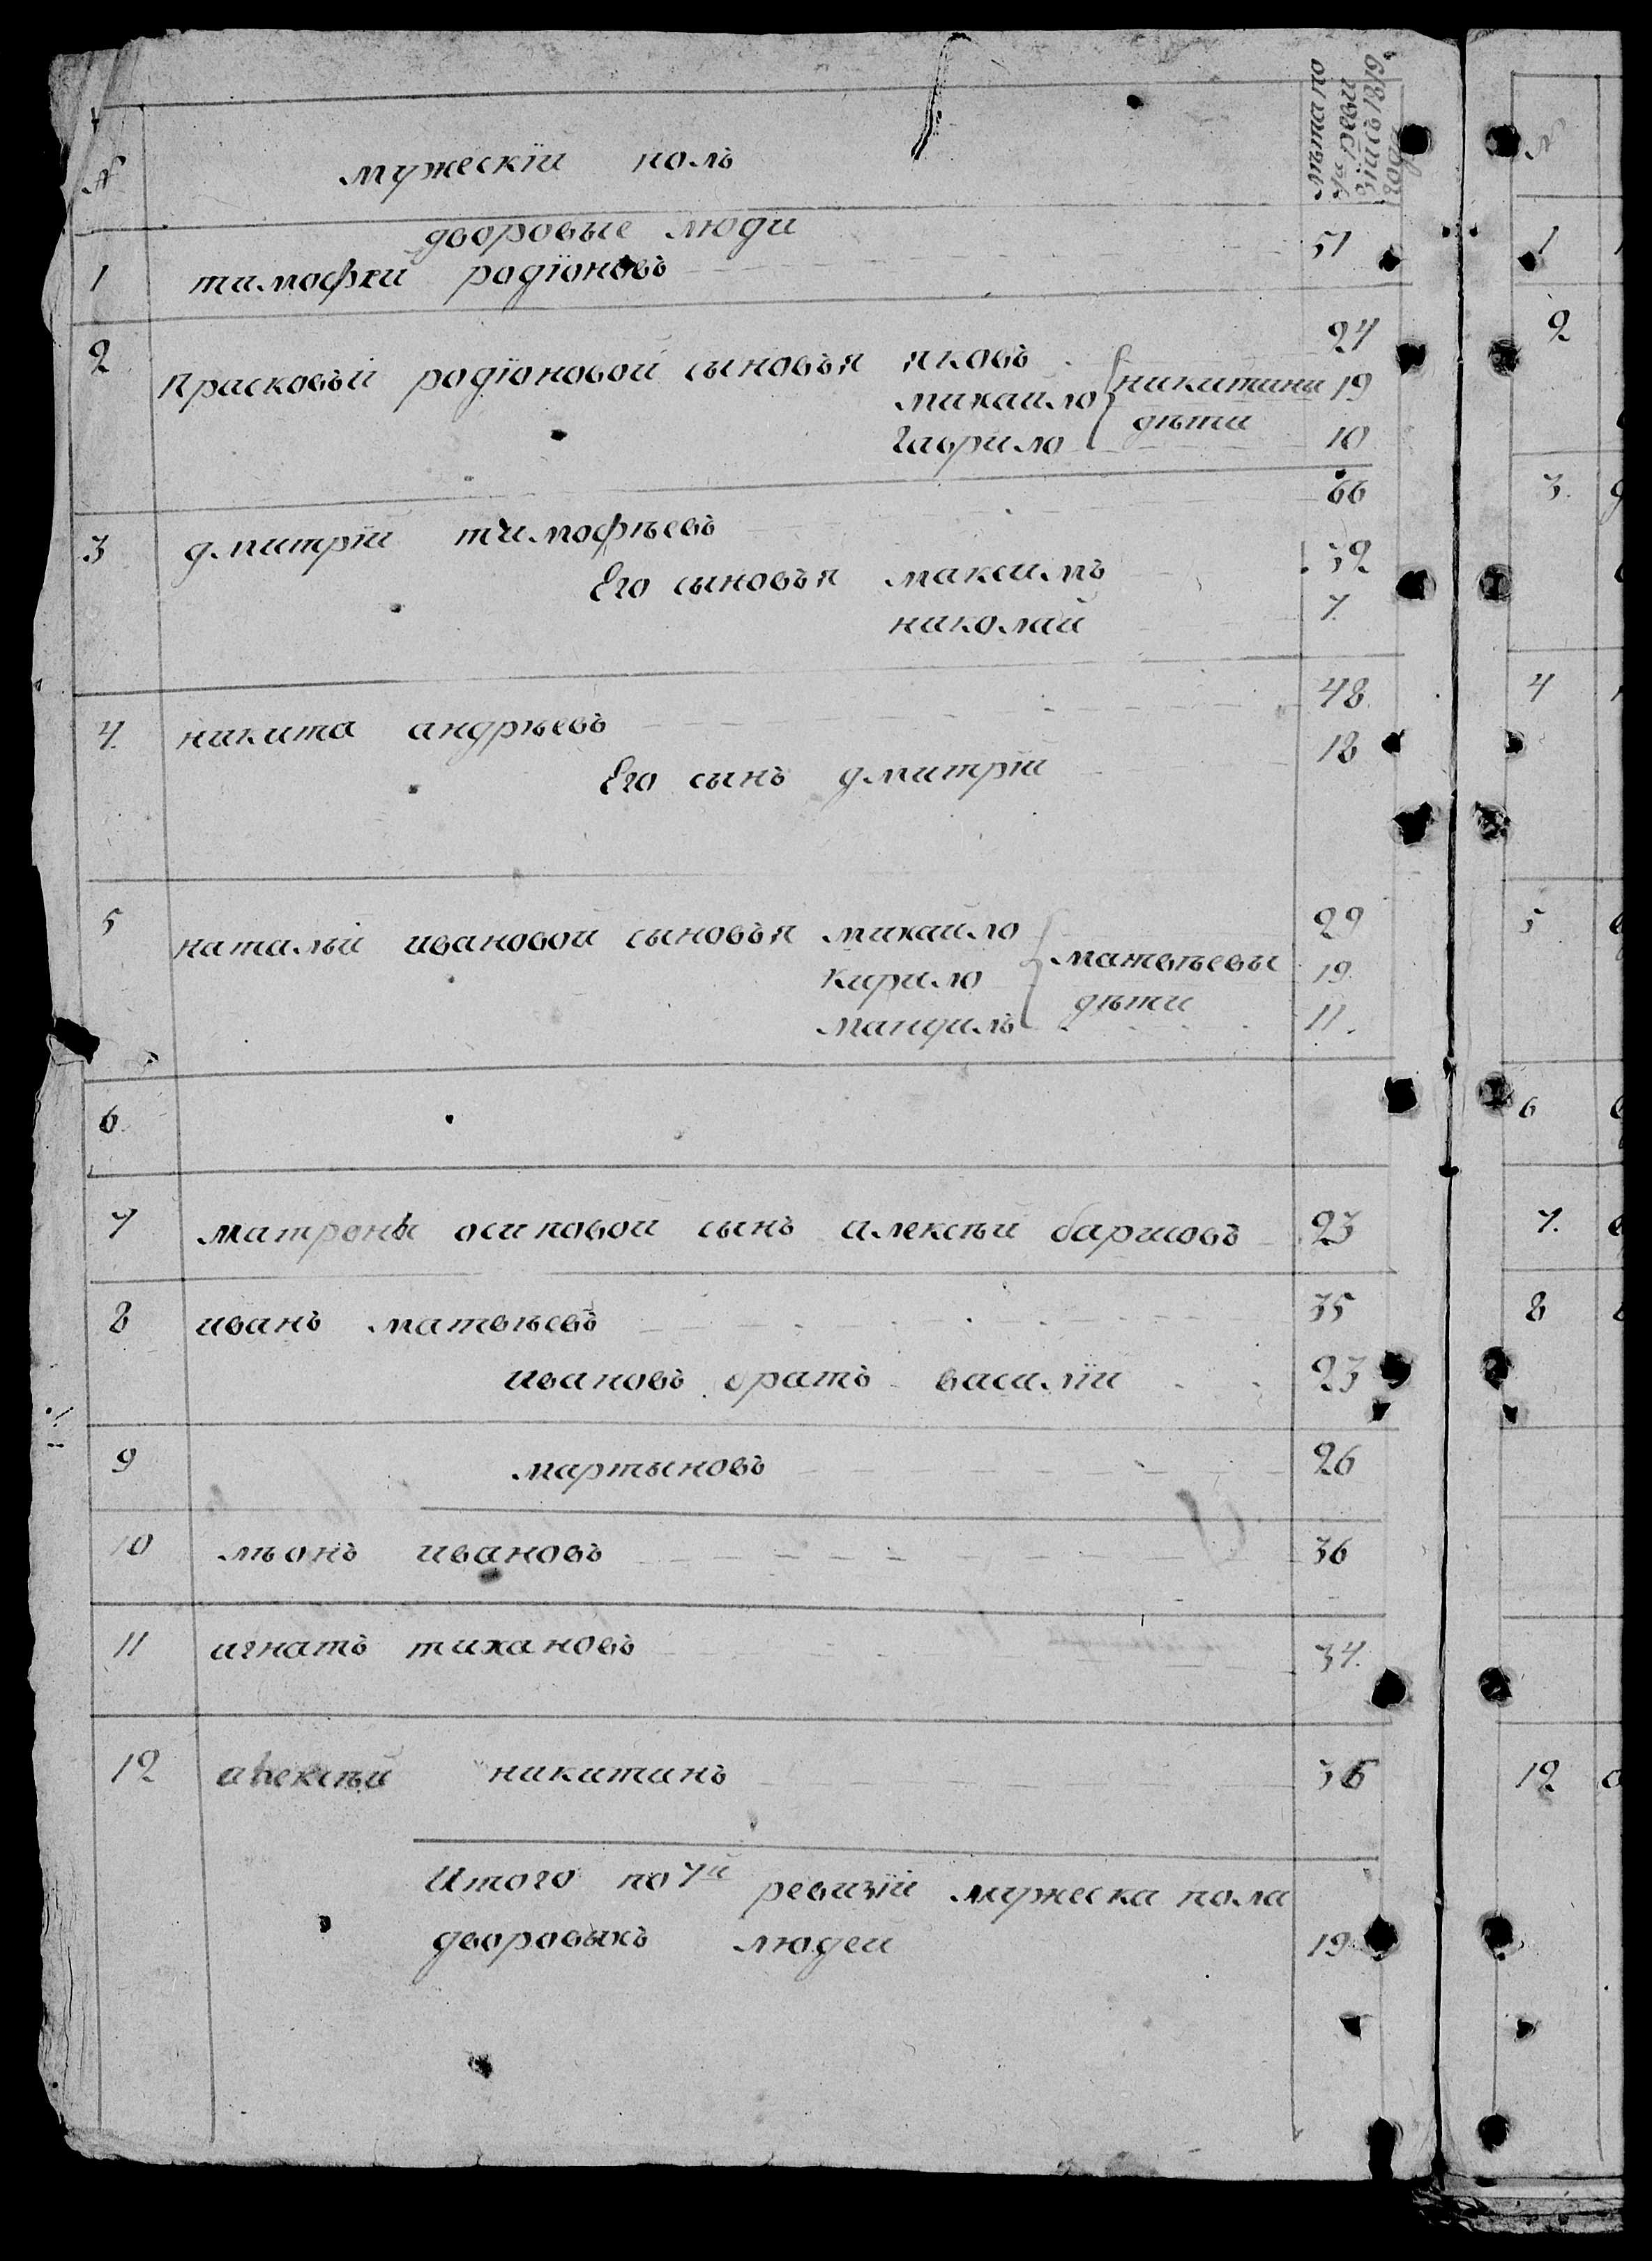 № мужескїи полъ лѣта по 7й ревизїи съ 1819 года
дворовые люди
1 тимофеи родїоновъ 51
2 Прасковьи родїоновой сыновья яковъ 24
михаило никитины 19
гаврило дѣти 10
3 дмитрїи тимофѣевъ 66
Его сыновья максимъ 32
николаи 7
4 никита андрѣевъ 48
Его сынъ дмитрїи 18
5 натальи ивановой сыновья михаило 29
кирило матвѣевы 19
мануилъ дѣти 11
6
7 матрены осиповой сынъ алексѣи барисовъ 23
8 иванъ матвѣевъ 35
ивановъ братъ василїи 23
9 мартыновъ 26
10 лѣонъ ивановъ 36
11 игнатъ тихановъ 34
12 алексѣй никитинъ 36
Итого по 7й ревизїи мужеска пола
дворовыхъ людеи 19
№
1
2
3
4
5
6
7
8
12